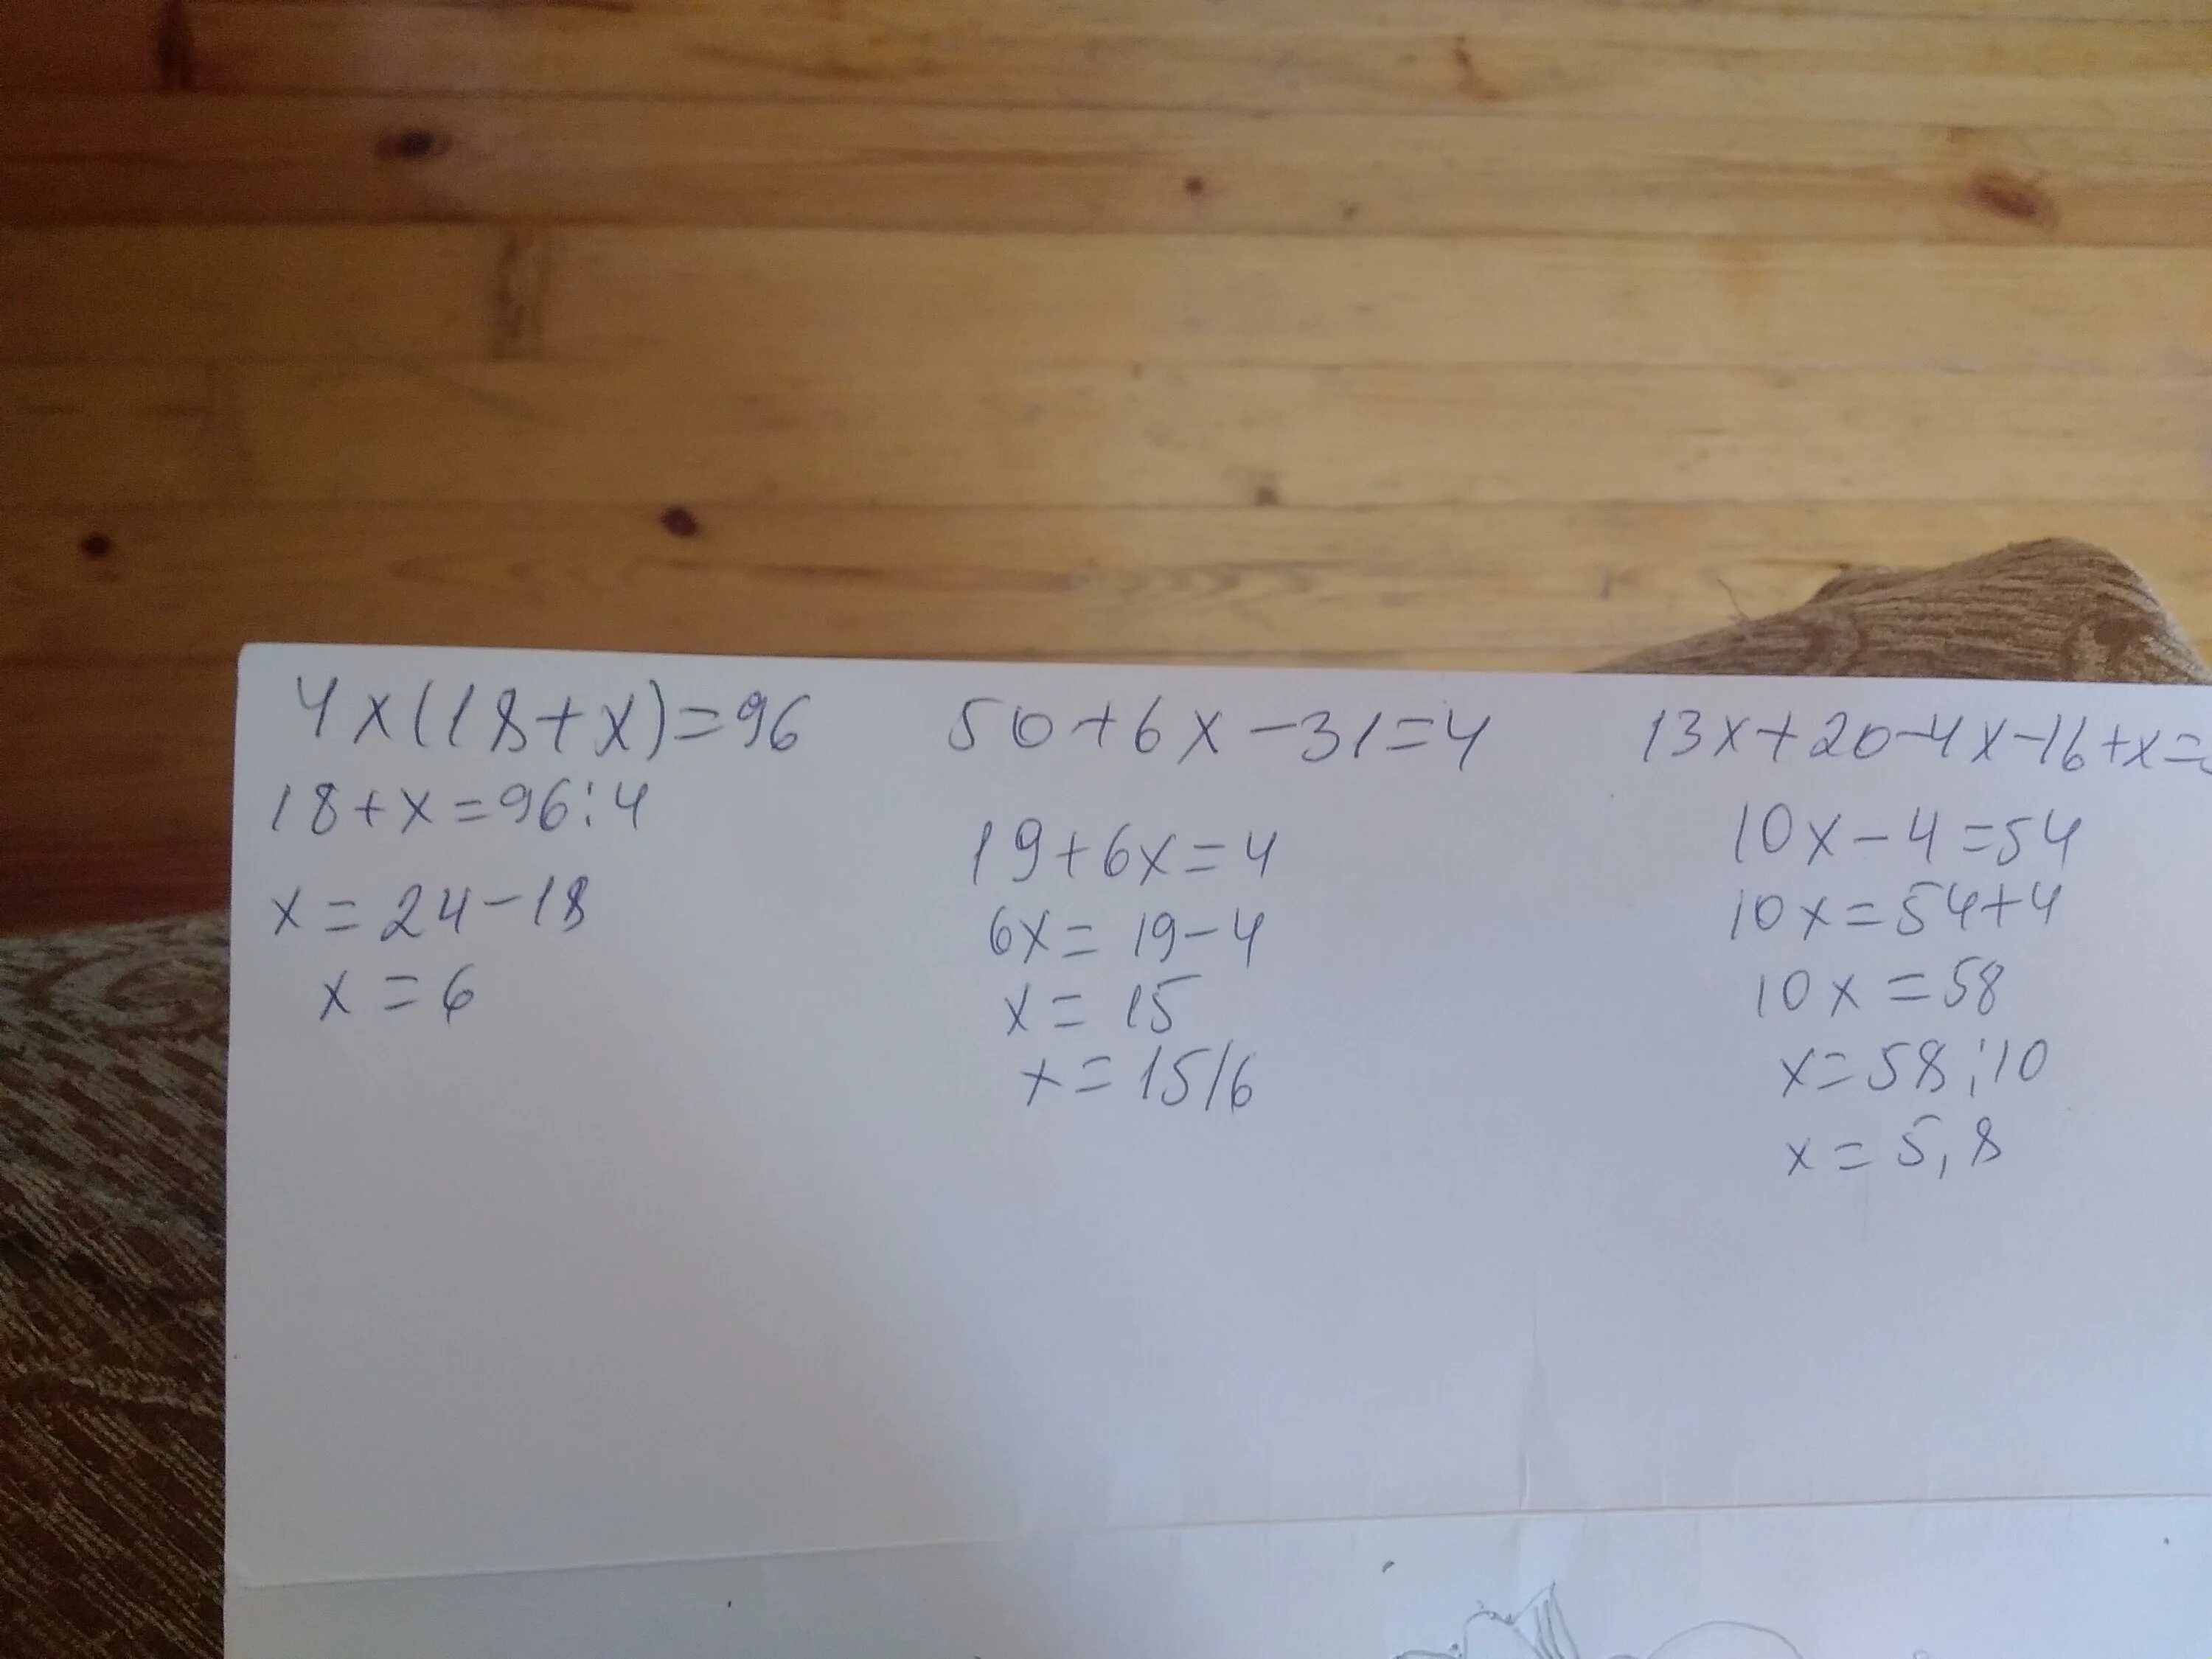 4x(18+x)=96
18+x=96:4
x=24-18
x=6
50+6x-31=4
19+6x=4
6x=19-4
x=15
x=15/6
13x+20-4x-16+x=
10x-4=54
10x=54+4
10x=58
x=58:10
x=5,8